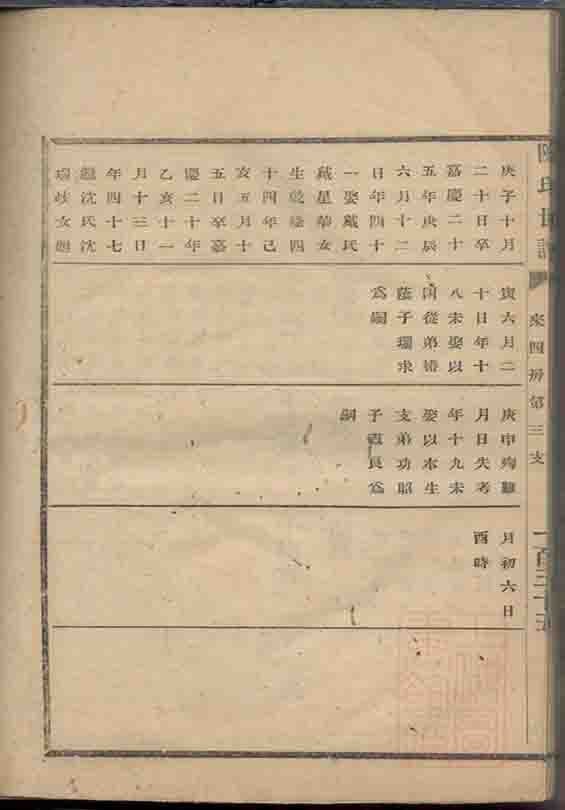 陳氏世譜
來四房第三支
一百三十五
庚子十月
二十日卒
嘉慶二十
五年庚辰
六月十二
日年四十
一娶戴氏
戴星華女
生乾隆四
十四年己
亥五月十
五日卒嘉
慶二十年
乙亥十一
月十三日
年四十七
繼沈氏沈
瑞岐女
寅六月二
十日年十
八未娶以
從弟
蔭子瑞求
為嗣
庚申殉難
月日失考
年十九未
娶以本生
支弟功昭
子良為
嗣
月初六日
酉時